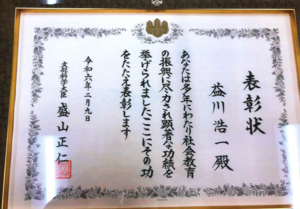 表彰状
益川浩一殿
あなたは多年にわたり社会教育
の振興に尽力され顕著な功績を
挙げられましたここにその功
をたたえ表彰します
令和六年二月九日
文部科学大臣 盛山正仁